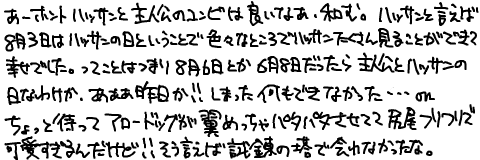 あーホント ハッサンと主人公のコンビは良いなあ、和む。 ハッサンと言えば
8月3日はハッサンの日ということで色々なところでハッサンたくさん見ることができて
幸せでした。ってことはつまり8月6日とか6月8日だったら主人公とハッサンの
日なわけか、あああ昨日か!! しまった 何もできなかった… orz
ちょっと待って アロードッグが翼めっちゃパタパタさせてて尻尾フリフリで
可愛すぎるんだけど!! そう言えば試錬の塔で会れなかたな。